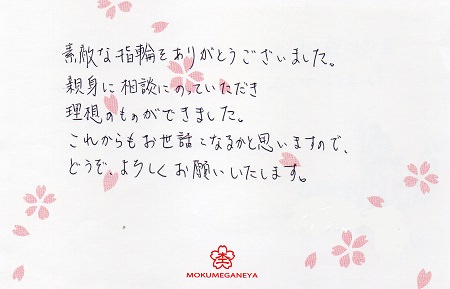 素敵な指輪をありがとうございました。
親身に相談にのっていただき
理想のものができました。
これからもお世話になるかと思いますので、
どうぞ、よろしくお願いいたします。
MOKUMEGANEYA